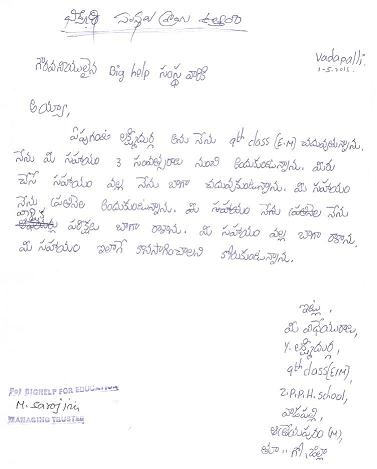 సంస్థకు వ్రాయు ఉత్తరం
గౌరవనీయులైన Big help సంస్థ వారికి
Vadapalli.
1-5-2015.
అయ్యా,
లక్ష్మీదుర్గ అను నేను 9th class (E.M) చదువుతున్నాను.
నేను మీ సహాయం 3 సంవత్సరాలు నుండి అందుకుంటున్నాను. మీరు
చేసే సహాయం వల్ల నేను బాగా చదువుకుంటున్నాను. మీ సహాయం
నేను ప్రతినెల అందుకుంటున్నాను. మీ సహాయం నేను ప్రతినెల నేను
వార్షిక పరీక్షలు బాగా రాశాను. మీ సహాయం వల్ల బాగా రాశాను.
మీ సహాయం ఇలాగే కొనసాగించాలని కోరుకుంటున్నాను.
ఇట్లు,
మీ విధేయురాలు,
Y. లక్ష్మీదుర్గ,
9th class(E.M),
Z.P.P.H. school,
వాడపల్లి,
ఆత్రేయపురం (M),
తూ.. గో. జిల్లా
For BIGHELP FOR EDUCATION
M. Sarojini
MANAGING TRUSTEE